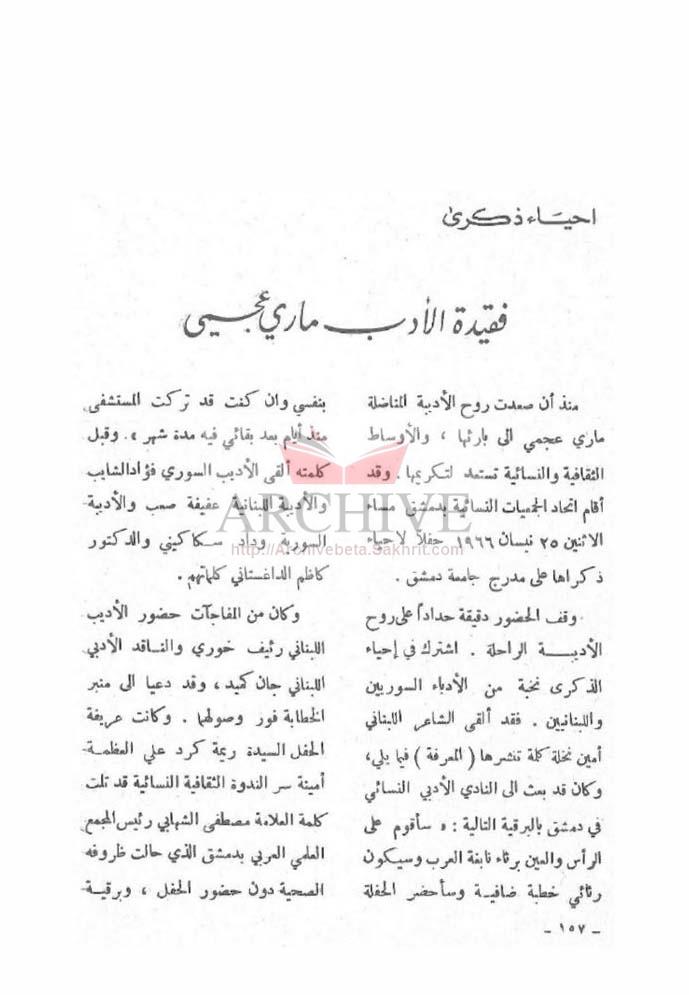 احياء ذكرى
فقيدة الأدب ماري عجمي
منذ أن صعدت روح الأديبة المناضلة
ماري عجمي الى بارئها ، والأوساط
الثقافية والنسائية تستعد لتكريمها . وقد
أقام اتحاد الجمعيات النسائية بدمشق مساء
الاثنين ٢٥ نيسان ١٩٦٦ حفلاً لاحياء
ذكراها على مدرج جامعة دمشق .
وقف الحضور دقيقة حداداً على روح
الأديبة الراحلة . اشترك في إحياء
الذكرى نخبة من الأدباء السوريين
واللبنانيين . فقد ألقى الشاعر اللبناني
أمين نخلة كلمة تنشرها ( المعرفة ) فيما يلي،
وكان قد بعث الى النادي الأدبي النسائي
في دمشق بالبرقية التالية : « سأقوم على
الرأس والعين برثاء نابغة العرب وسيكون
رثائي خطبة ضافية وسأحضر الحفلة
بنفسي وان كنت قد تركت المستشفى
منذ أيام بعد بقائي فيه مدة شهر » . وقبل
كلمته ألقى الأديب السوري فؤاد الشايب
والأديبة اللبنانية عفيفة صعب والأديبة
السورية وداد سكاكيني والدكتور
كاظم الداغستاني كلماتهم .
وكان من المفاجآت حضور الأديب
اللبناني رئيف خوري والناقد الأدبي
اللبناني جان كميد ، وقد دعيا الى منبر
الخطابة فور وصولهما . وكانت عريفة
الحفل السيدة ريمة كرد علي العظمة
أمينة سر الندوة الثقافية النسائية قد تلت
كلمة العلامة مصطفى الشهابي رئيس المجمع
العلمي العربي بدمشق الذي حالت ظروفه
الصحية دون حضور الحفل ، وبرقية
- ١٥٧ -
ARCHIVE
http://Archivebeta.Sakhrit.com